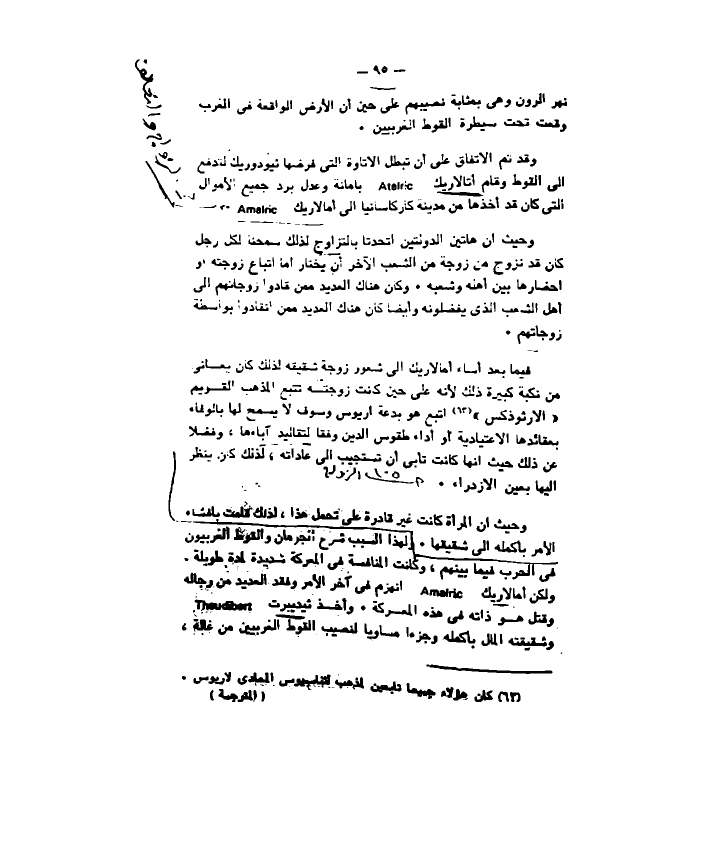 — ٩٥ —
الزواج والتحالف
نهر الرون وهى بمثابة نصيبهم على حين أن الأرض الواقعة فى الغرب
وقعت تحت سيطرة القوط الغربيين ٠
وقد تم الاتفاق على أن تبطل الاتاوة التى فرضها ثيودوريك لتدفع
الى القوط وقام أتالاريك Atalric بامانة وعدل برد جميع الأموال
التى كان قد أخذها من مدينة كاركاسانيا الى أمالاريك Amalric ٠
وحيث ان هاتين الدولتين اتحدتا بالتزاوج لذلك سمحتا لكل رجل
كان قد تزوج من زوجة من الشعب الآخر أن يختار اما اتباع زوجته أو
احضارها بين أهله وشعبه ٠ وكان هناك العديد ممن قادوا زوجاتهم الى
أهل الشعب الذى يفضلونه وأيضا كان هناك العديد ممن انقادوا بواسطة
زوجاتهم ٠
فيما بعد أساء أمالاريك الى شعور زوجة شقيقه لذلك كان يعانى
من نكبة كبيرة ذلك لأنه على حين كانت زوجته تتبع المذهب القويم
« الارثوذكس »(٦٣) اتبع هو بدعة اريوس وسوف لا يسمح لها بالوفاء
بعقائدها الاعتيادية أو أداء طقوس الدين وفقا لتقاليد آباءها ، وفضلا
عن ذلك حيث انها كانت تأبى أن تستجيب الى عاداته ، لذلك كان ينظر
اليها بعين الازدراء ٠
وحيث ان المرأة كانت غير قادرة على تحمل هذا ، لذلك قامت بافشاء
الأمر بأكمله الى شقيقها ٠ ولهذا السبب شرع الجرمان والقوط الغربيون
فى الحرب فيما بينهم ، وكانت المنافسة فى المعركة شديدة لمدة طويلة ٠
ولكن أمالاريك Amalric انهزم فى آخر الأمر وفقد العديد من رجاله
وقتل هو ذاته فى هذه المعركة ٠ وأخذ ثيديبرت Theudibert
وشقيقته المال بأكمله وجزءا مساويا لنصيب القوط الغربيين من غالة ،
(٦٣) كان هؤلاء جميعا تابعين لمذهب اثناسيوس المعادى لاريوس ٠
( المترجمة )